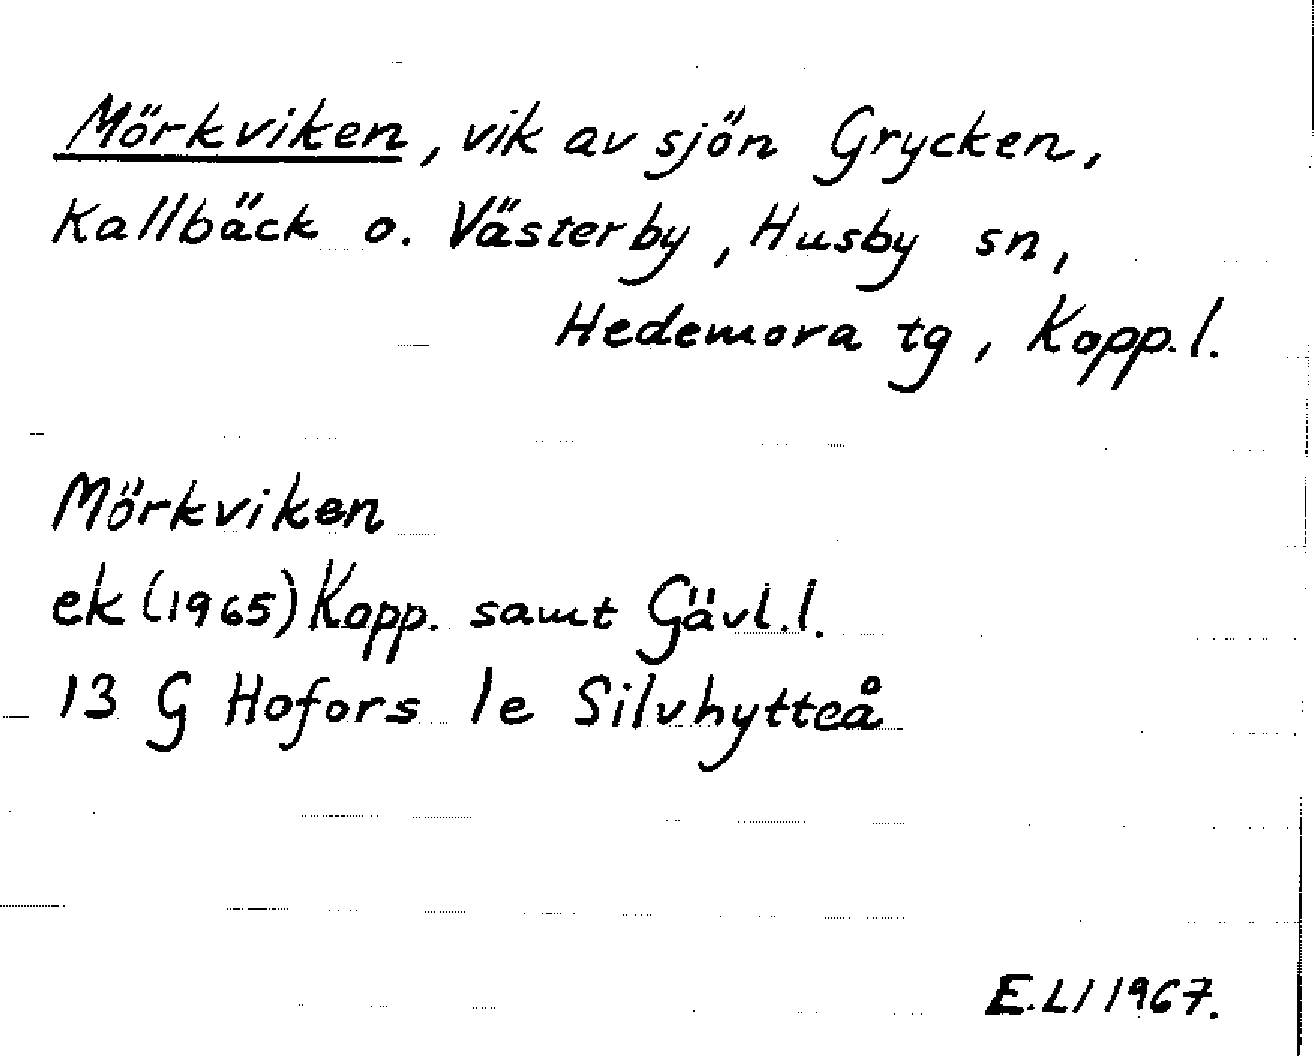 Mörkviken, vik av sjön Grycken,
Kallbäck o. Västerby, Husby sn,
Hedemora tg, Kopp.l.
Mörkviken
ek (1965) Kopp. samt Gävl.l.
13 G Hofors 1e Silvhytteå
E.Ll 1967.